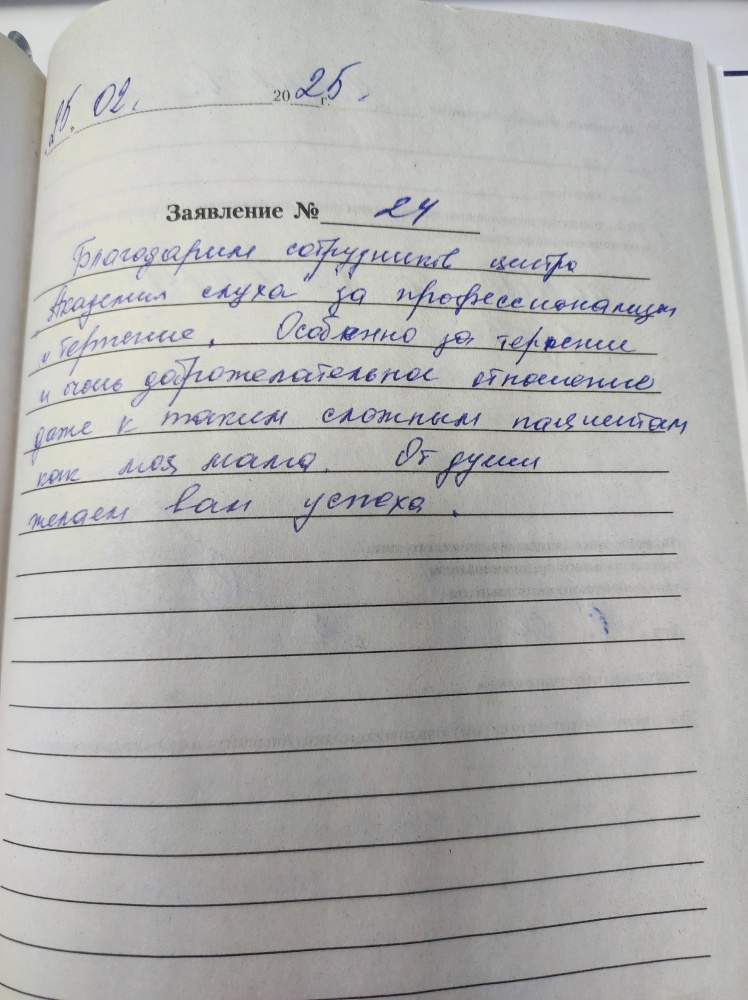 25. 02. 2025 г.
Заявление № 24
Благодарим сотрудников центра
"Академия слуха" за профессионализм
и терпение. Особенно за терпение
и очень доброжелательное отношение
даже к таким сложным пациентам
как моя мама. От души
желаем вам успеха.